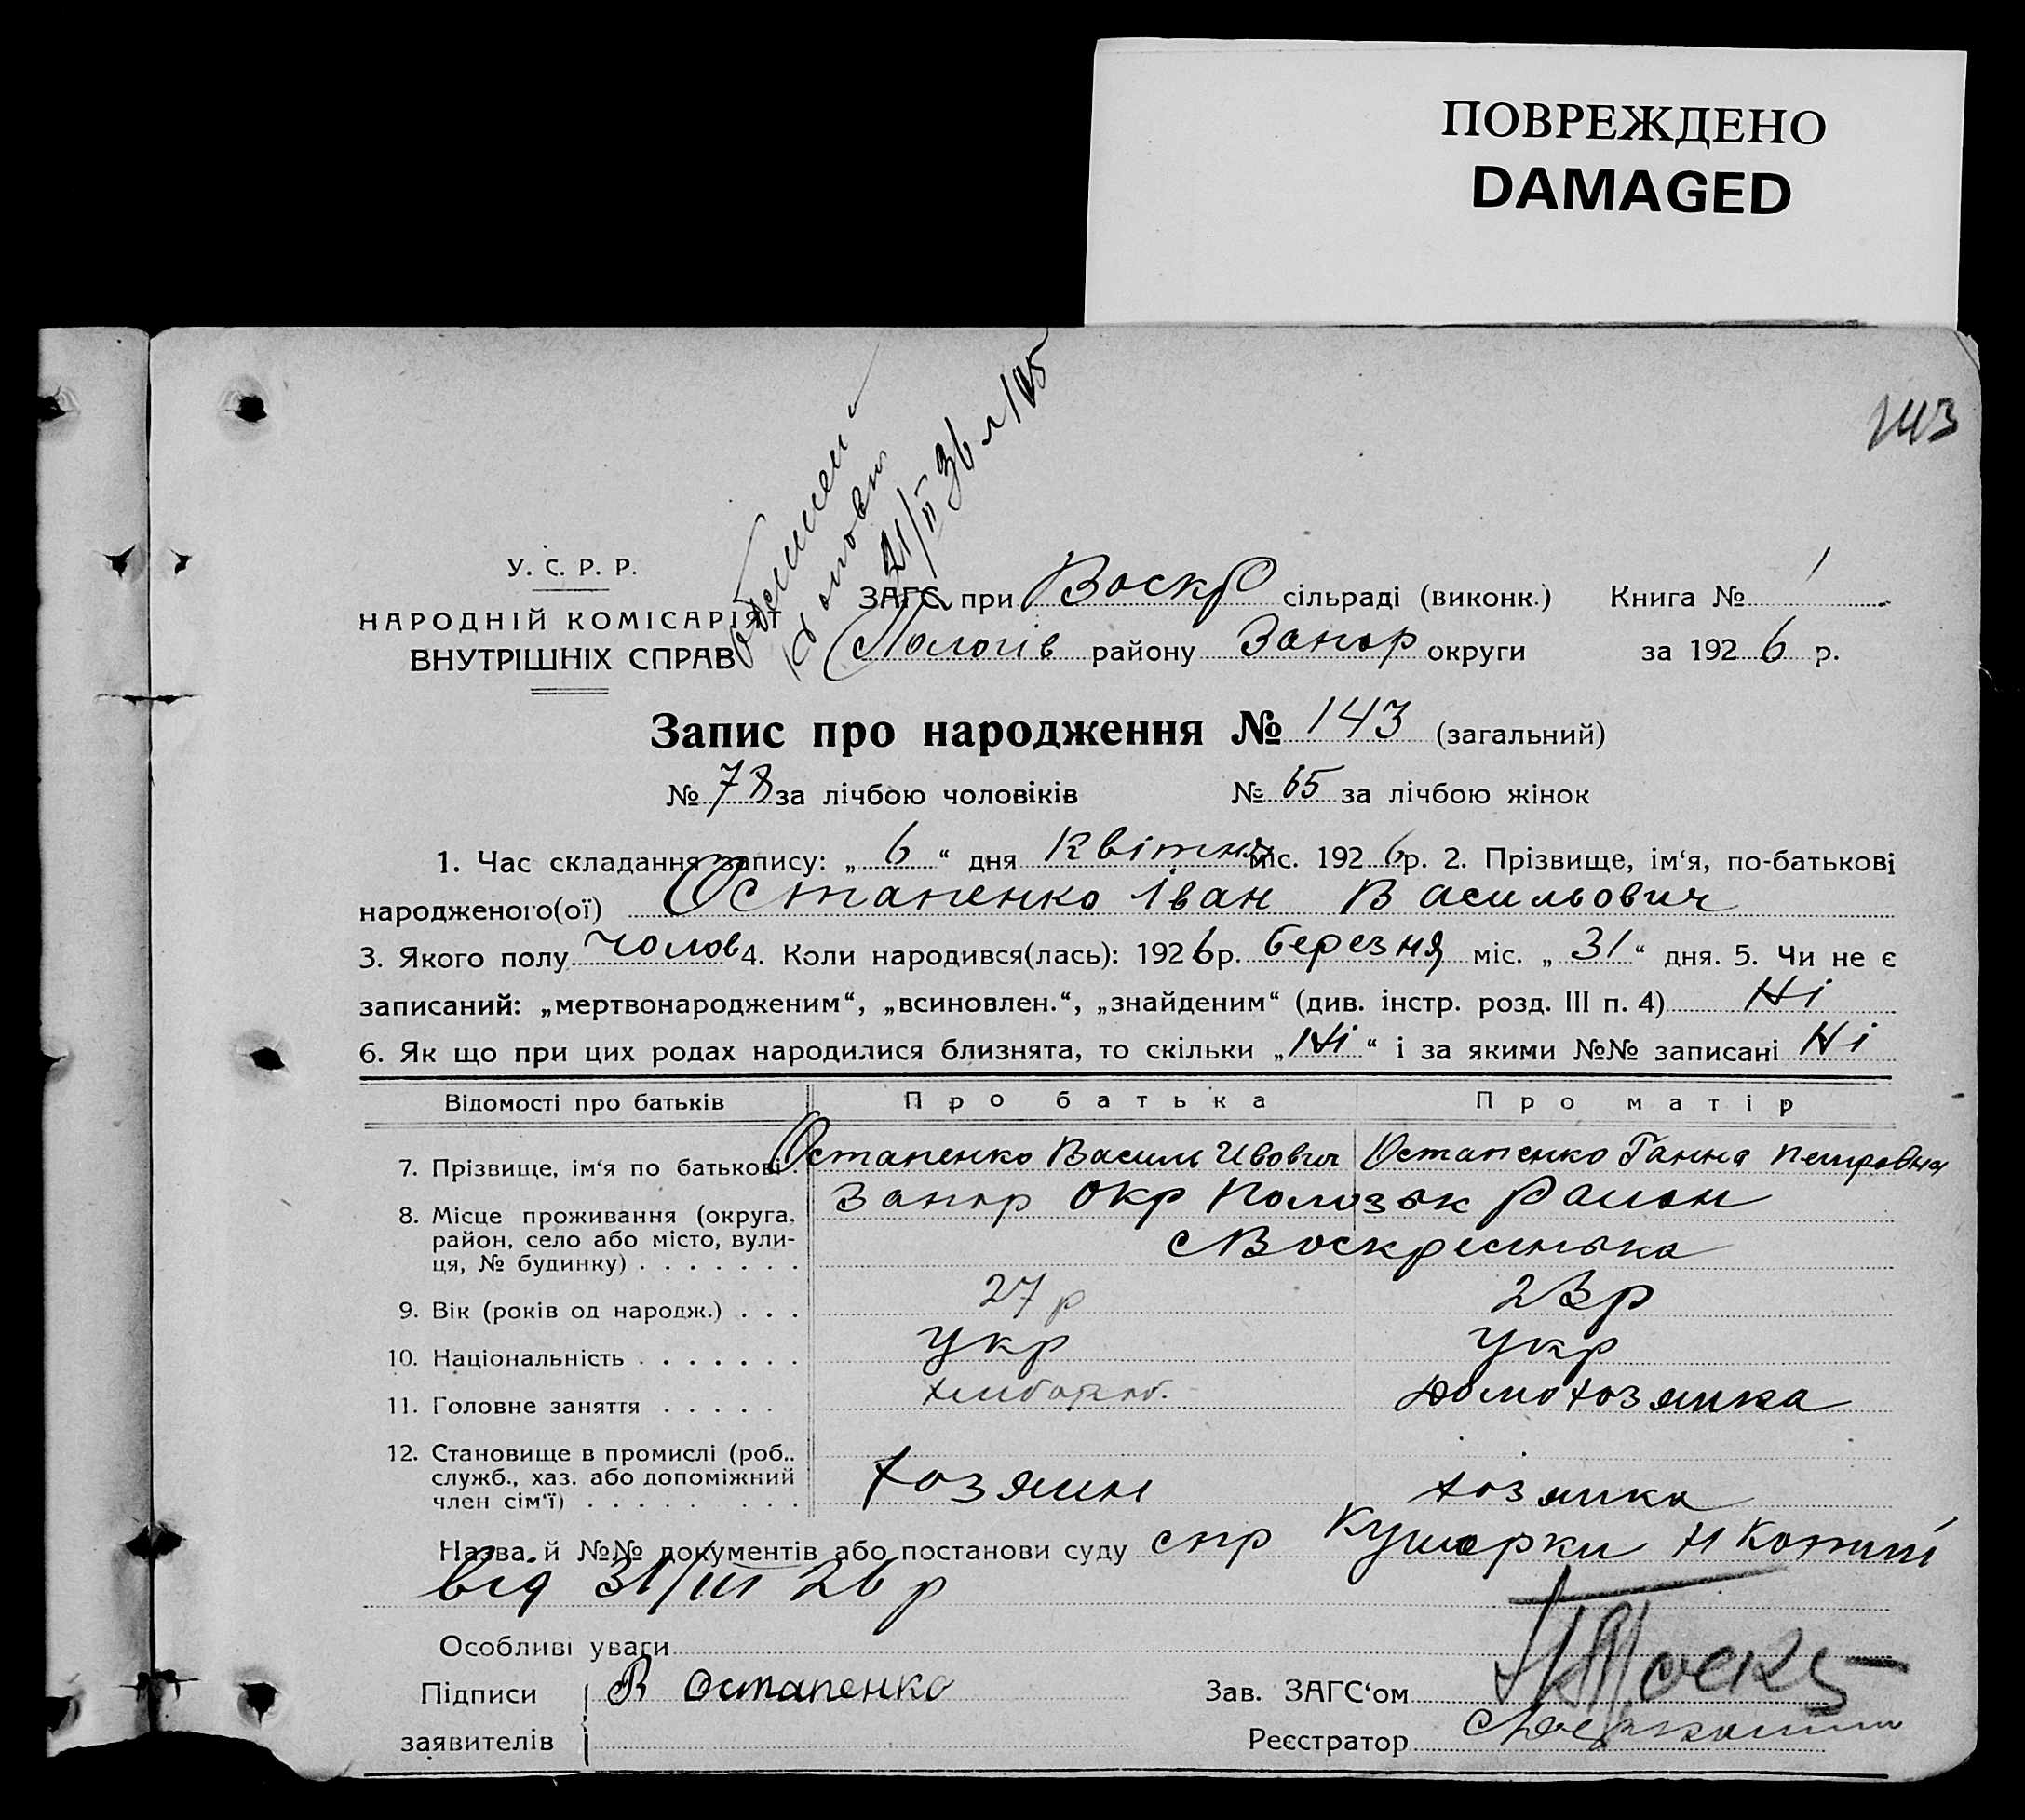 ПОВРЕЖДЕНО
DAMAGED
143
21/II 36
У. С. Р. Р.
НАРОДНІЙ КОМІСАРІЯТ
ВНУТРІШНІХ СПРАВ
ЗАГС при Воскр сільраді (виконк.) Книга № 1
Пологів району Запор округи за 1926 р.
Запис про народження № 143 (загальний)
№ 78 за лічбою чоловіків № 65 за лічбою жінок
1. Час складання запису: „ 6 “ дня Квітня міс. 1926 р. 2. Прізвище, ім‘я, по-батькові
народженого(ої) Остапенко Іван Васильович
3. Якого полу чолов 4. Коли народився(лась): 1926 р. березня міс. „ 31 “ дня. 5. Чи не є
записаний: „мертвонародженим“, „всиновлен.“, „знайденим“ (див. інстр. розд. III п. 4) Ні
6. Як що при цих родах народилися близнята, то скільки „ Ні “ і за якими №№ записані Ні
Відомості про батьків Про батька Про матір
7. Прізвище, ім‘я по батькові . Остапенко Василь Ивович Остапенко Ганна Петровна
8. Місце проживання (округа, Запор окр Полозьк Район
район, село або місто, вули-
ця, № будинку) . . . . . . . с Воскресенька
9. Вік (років од народж.) . . . 27 р 23 р
10. Національність . . . . . . . Укр Укр
11. Головне заняття . . . . . хлібороб. Домохозяйка
12. Становище в промислі (роб.,
служб., хаз. або допоміжний
член сім‘ї) . . . . . . . . хозяин хозяйка
Назва й №№ документів або постанови суду спр
від 31/III 26 р
Особливі уваги
Підписи В Остапенко Зав. ЗАГС‘ом
заявителів Реєстратор